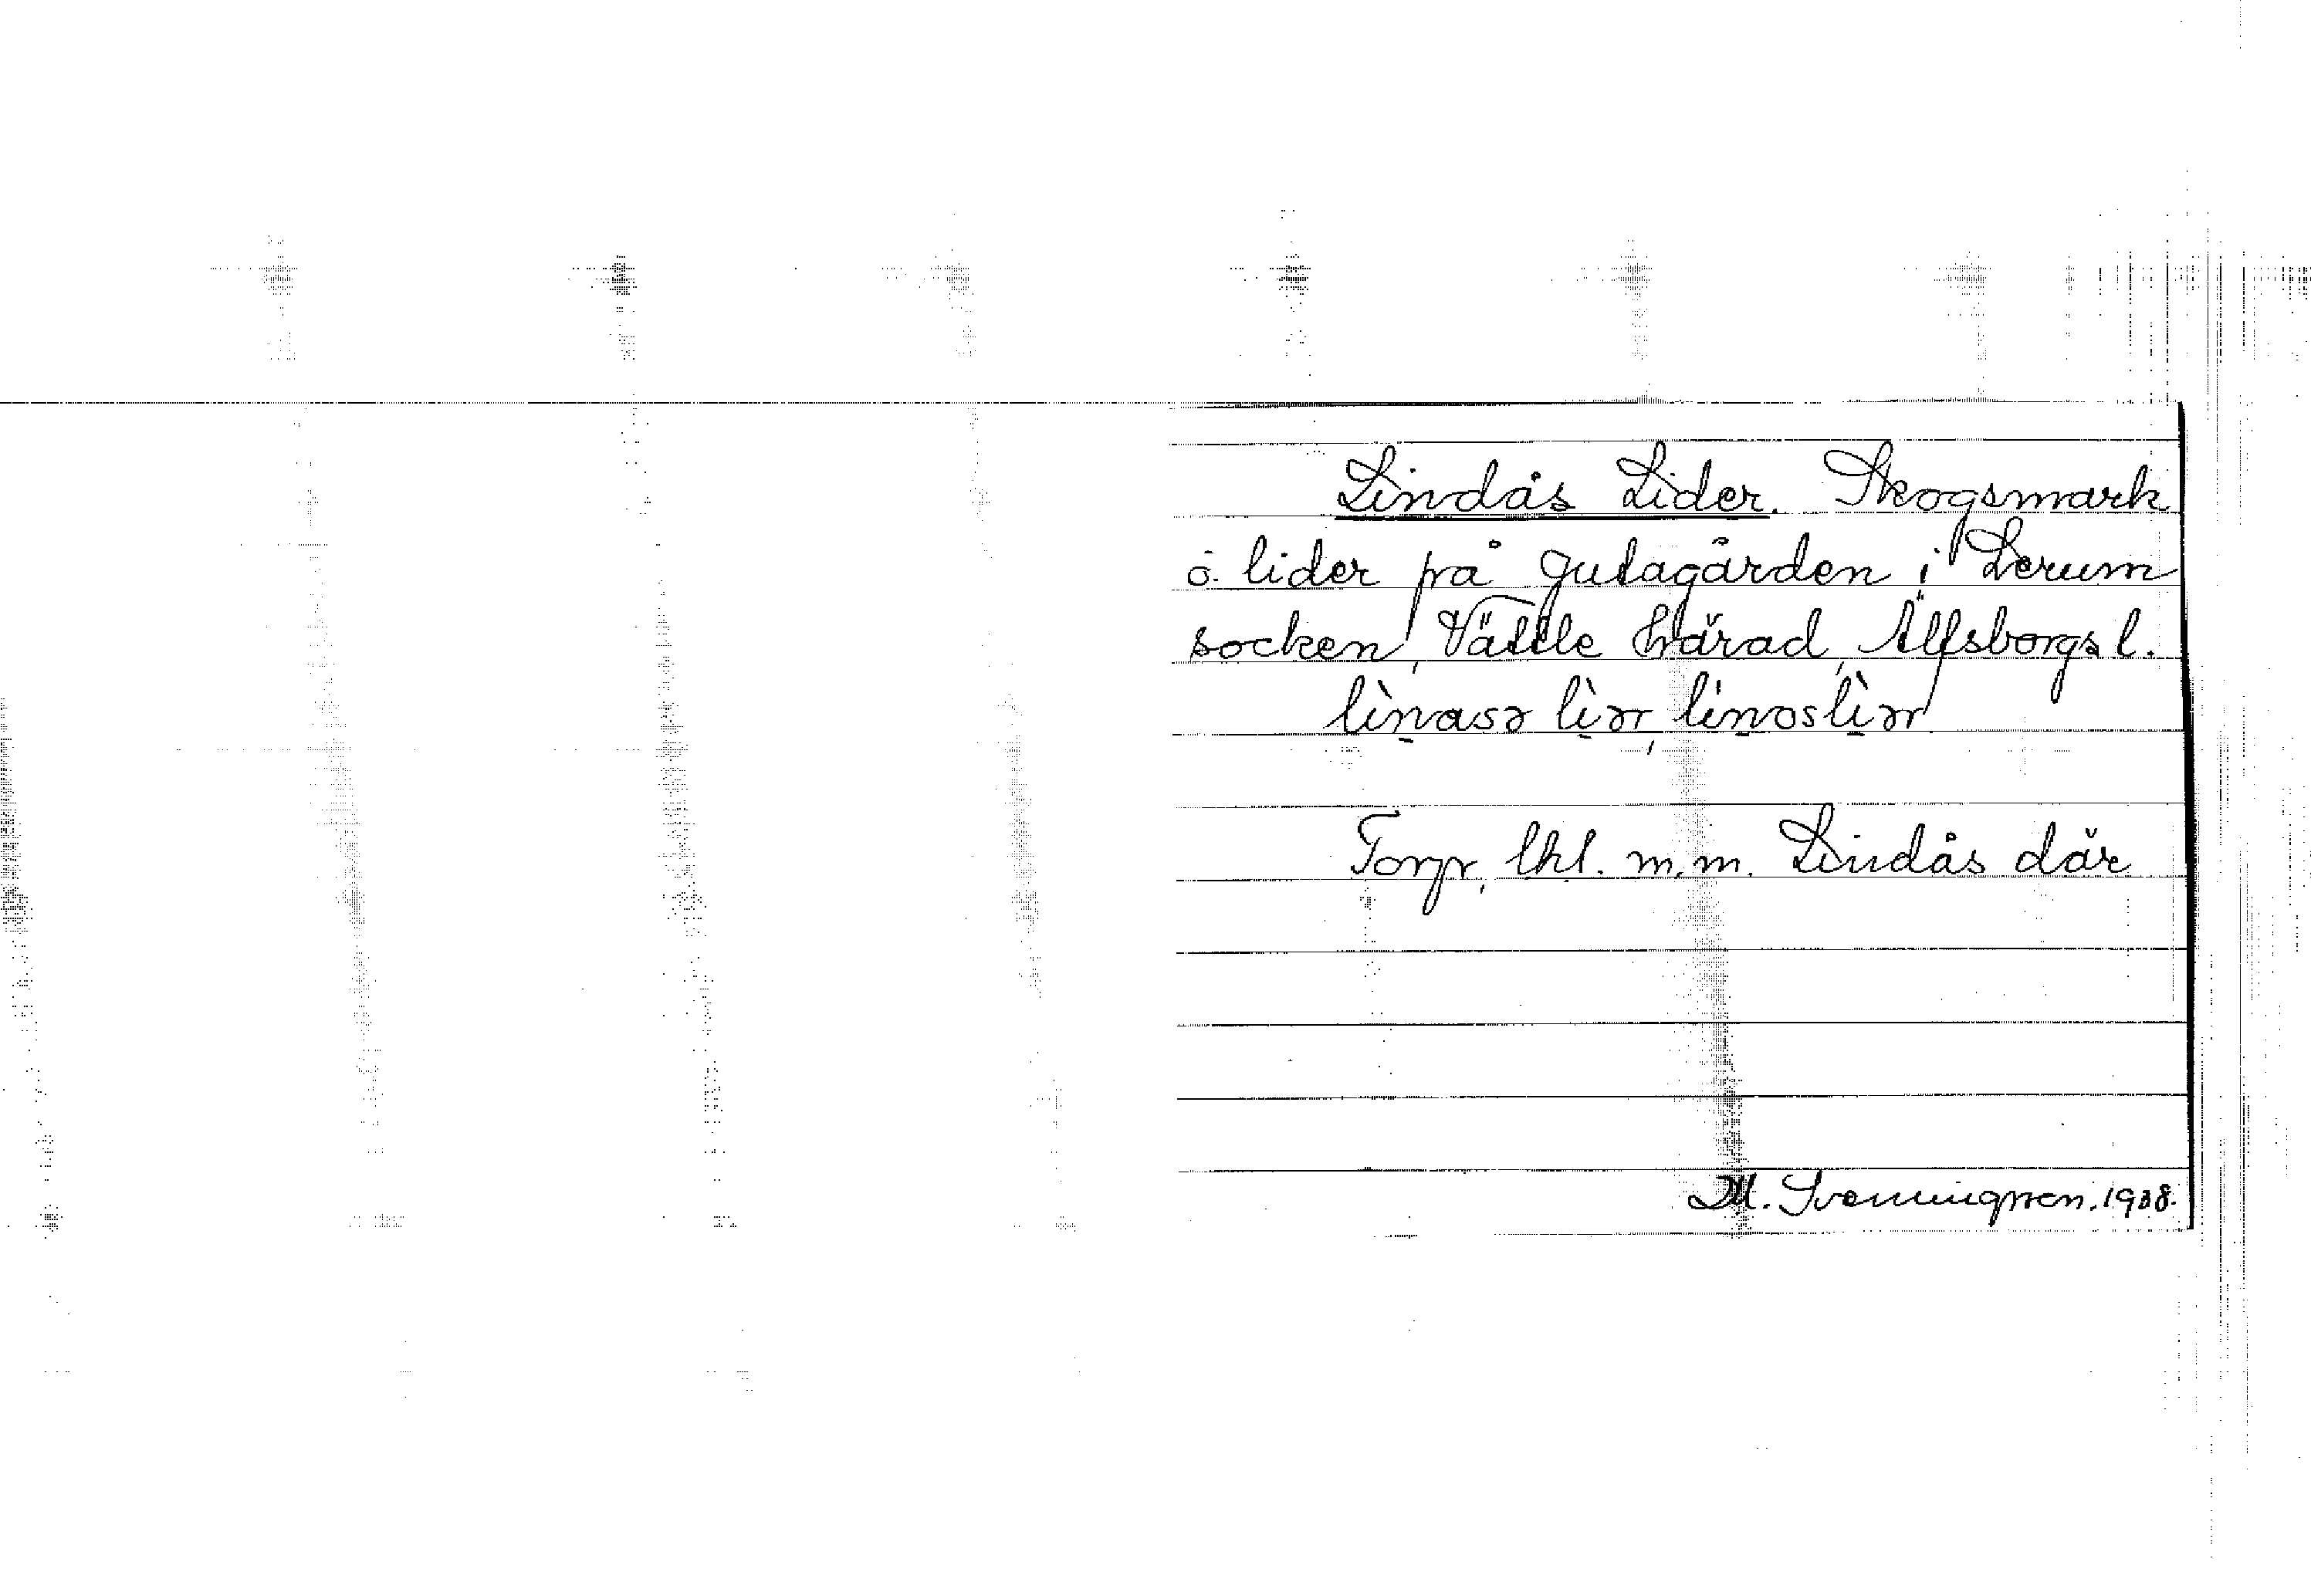 Lindås Lider. Skogsmark
o. lider på Gutagården i Lerum
socken, Vättle härad, Älfsborgs l.
lìnasə lìər, lìnoslìər
Torpr, lhl. m.m. Lindås där
M. Svenningsson. 1938.